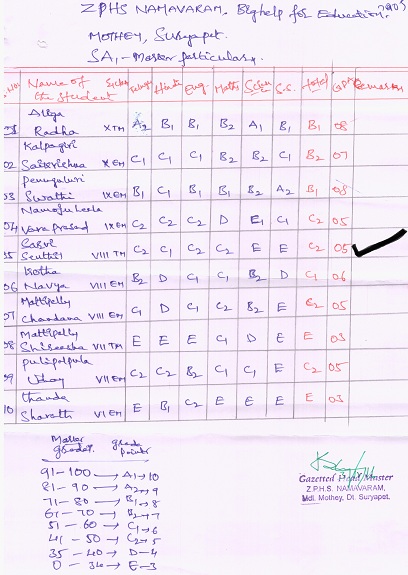 ZPHS NAMAVARAM, Big help for Education,
MOTHEY, Suryapet.
SA1 - Master particulars.
S.NO Name of the Student Telugu Hindi Eng Maths S.S. Total GPA Remarks
Radha X TM A2 B1 B1 B2 A1 B1 B1 08
Kalpagiri
02 Saikrishna X EM C1 C1 C1 B2 B2 C1 B2 07
Penuguluri
03 Swathi IX EM B1 C1 B1 B1 B2 A2 B1 08
04 Vara Prasad IX EM C2 C2 C2 D E1 C1 C2 05
05 VIII TM C2 C2 C2 C2 E E C2 05
Kotha
06 Navya VIII EM B2 D C1 C1 B2 D C1 06
Mattipelly
07 Chandana VIII EM C1 D C1 C2 B2 E 05
Mattipelly
08 Shireesha VII TM E E E C1 D E E 03
pulipalpula
09 Uday VII EM C2 C2 B2 C1 C1 E C2 05
thanda
10 Sharath VI EM E B1 C2 E E E E 03
Grades. Grade Points
91 - 100 → A1 → 10
81 - 90 → A2 → 9
71 - 80 → B1 → 8
61 - 70 → B2 → 7
51 - 60 → C1 → 6
41 - 50 → C2 → 5
35 - 40 → D - 4
0 - 34 → E - 3
Gazetted Head Master
Z.P.H.S. NAMAVARAM,
Mdl. Mothey, Dt. Suryapet.